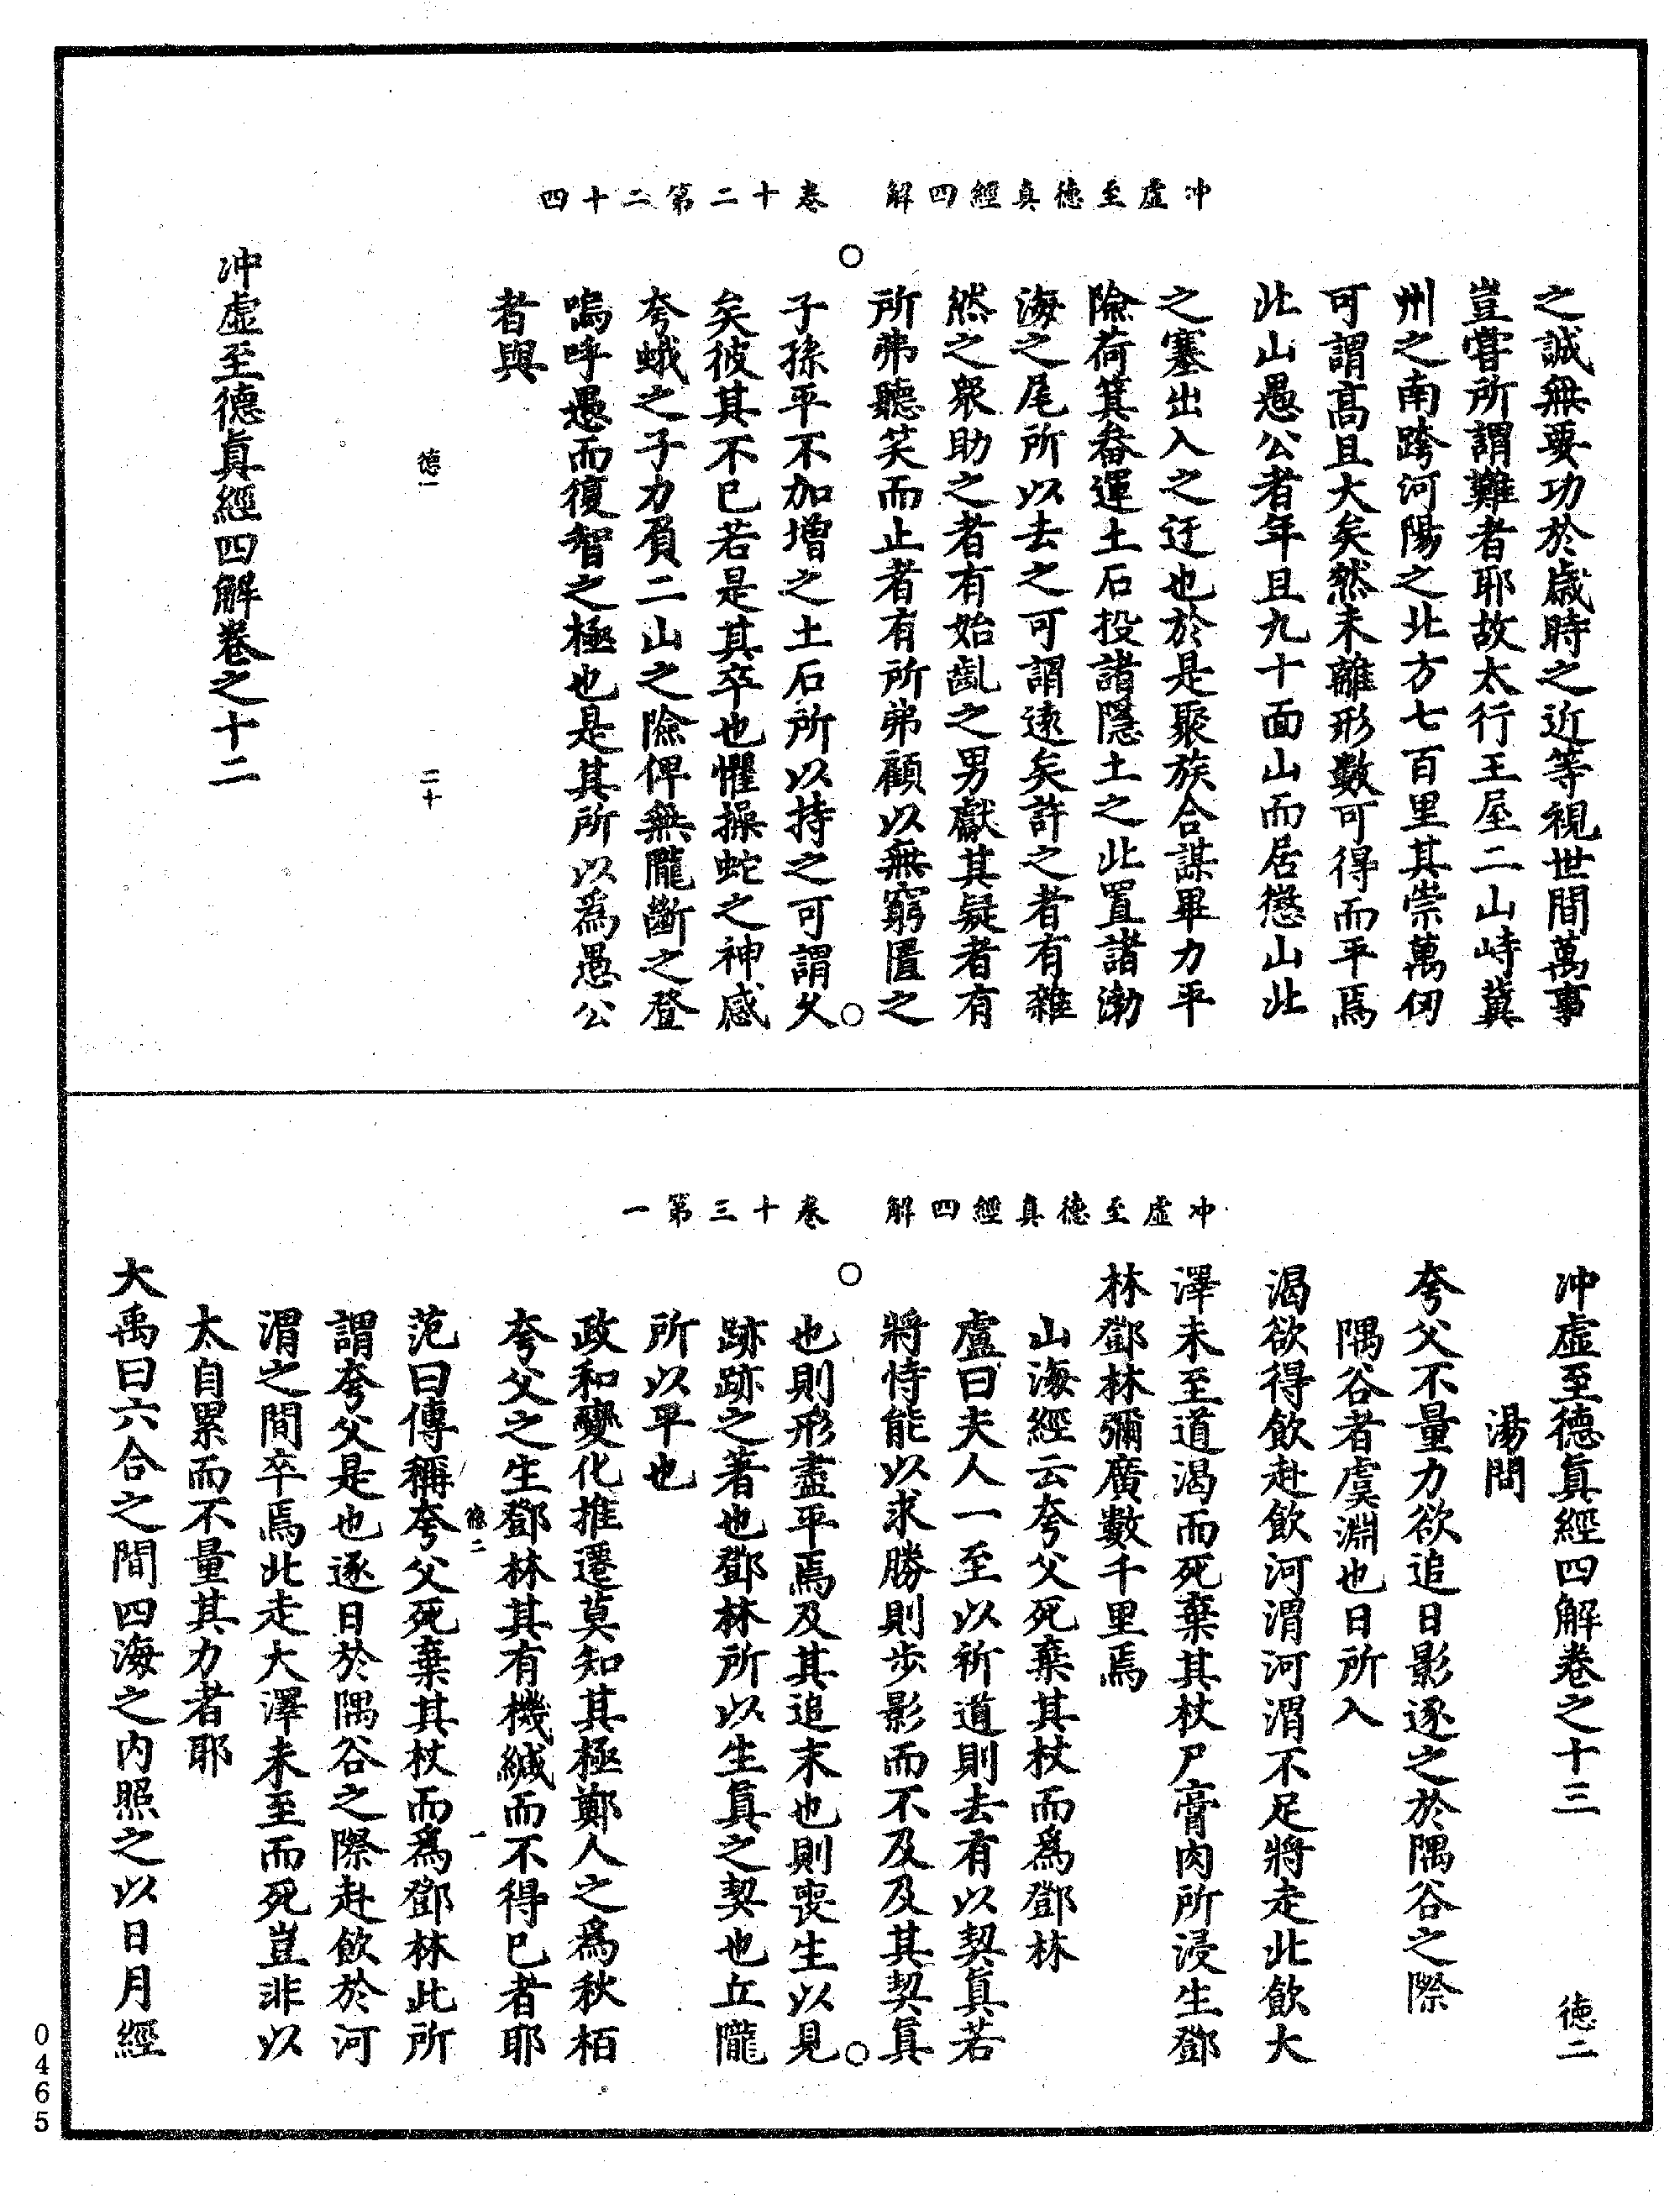 冲虛至德真經四解　卷十二第二十四
之誠無要功於歲時之近等視世間萬事
豈嘗所謂難者耶故太行王屋二山峙冀
州之南跨河陽之北方七百里其崇萬仞
可謂高且大矣然未離形數可得而平焉
此山愚公者年且九十面山而居懲山此
之塞出入之迂也於是聚族合謀畢力平
險荷箕畚運土石投諸隱土之北置諸渤
海之尾所以去之可謂遠矣許之者有雜
然之衆助之者有始齓之男獻其疑者有
所弗聽笑而止者有所弗顧以無窮匱之
子孫平不加增之土石所以持之可謂久
矣彼其不已若是其卒也懼操蛇之神感
夸蛾之子力負二山之險俾無隴斷之登
嗚呼愚而復智之極也是其所以爲愚公
者與
德一　二十
冲虛至德眞經四解卷之十二
冲虛至德真經四解　卷十三第一
冲虛至德眞經四解卷之十三　德二
湯問
夸父不量力欲追日影逐之於隅谷之際
隅谷者虞淵也日所入
渴欲得飲赴飲河渭河渭不足將走北飲大
澤未至道渴而死棄其杖尸膏肉所浸生鄧
林鄧林彌廣數千里焉
山海經云夸父死棄其杖而爲鄧林
盧曰夫人一至以祈道則去有以契眞若
將恃能以求勝則步影而不及及其契眞
也則形盡平焉及其追末也則喪生以見
跡跡之著也鄧林所以生眞之契也丘隴
所以平也
政和變化推遷莫知其極鄭人之爲秋栢
夸父之生鄧林其有機緘而不得已者耶
德二　一
范曰傳稱夸父死棄其杖而爲鄧林此所
謂夸父是也逐日於隅谷之際赴飲於河
渭之間卒焉北走大澤未至而死豈非以
太自累而不量其力者耶
大禹曰六合之間四海之內照之以日月經
0465